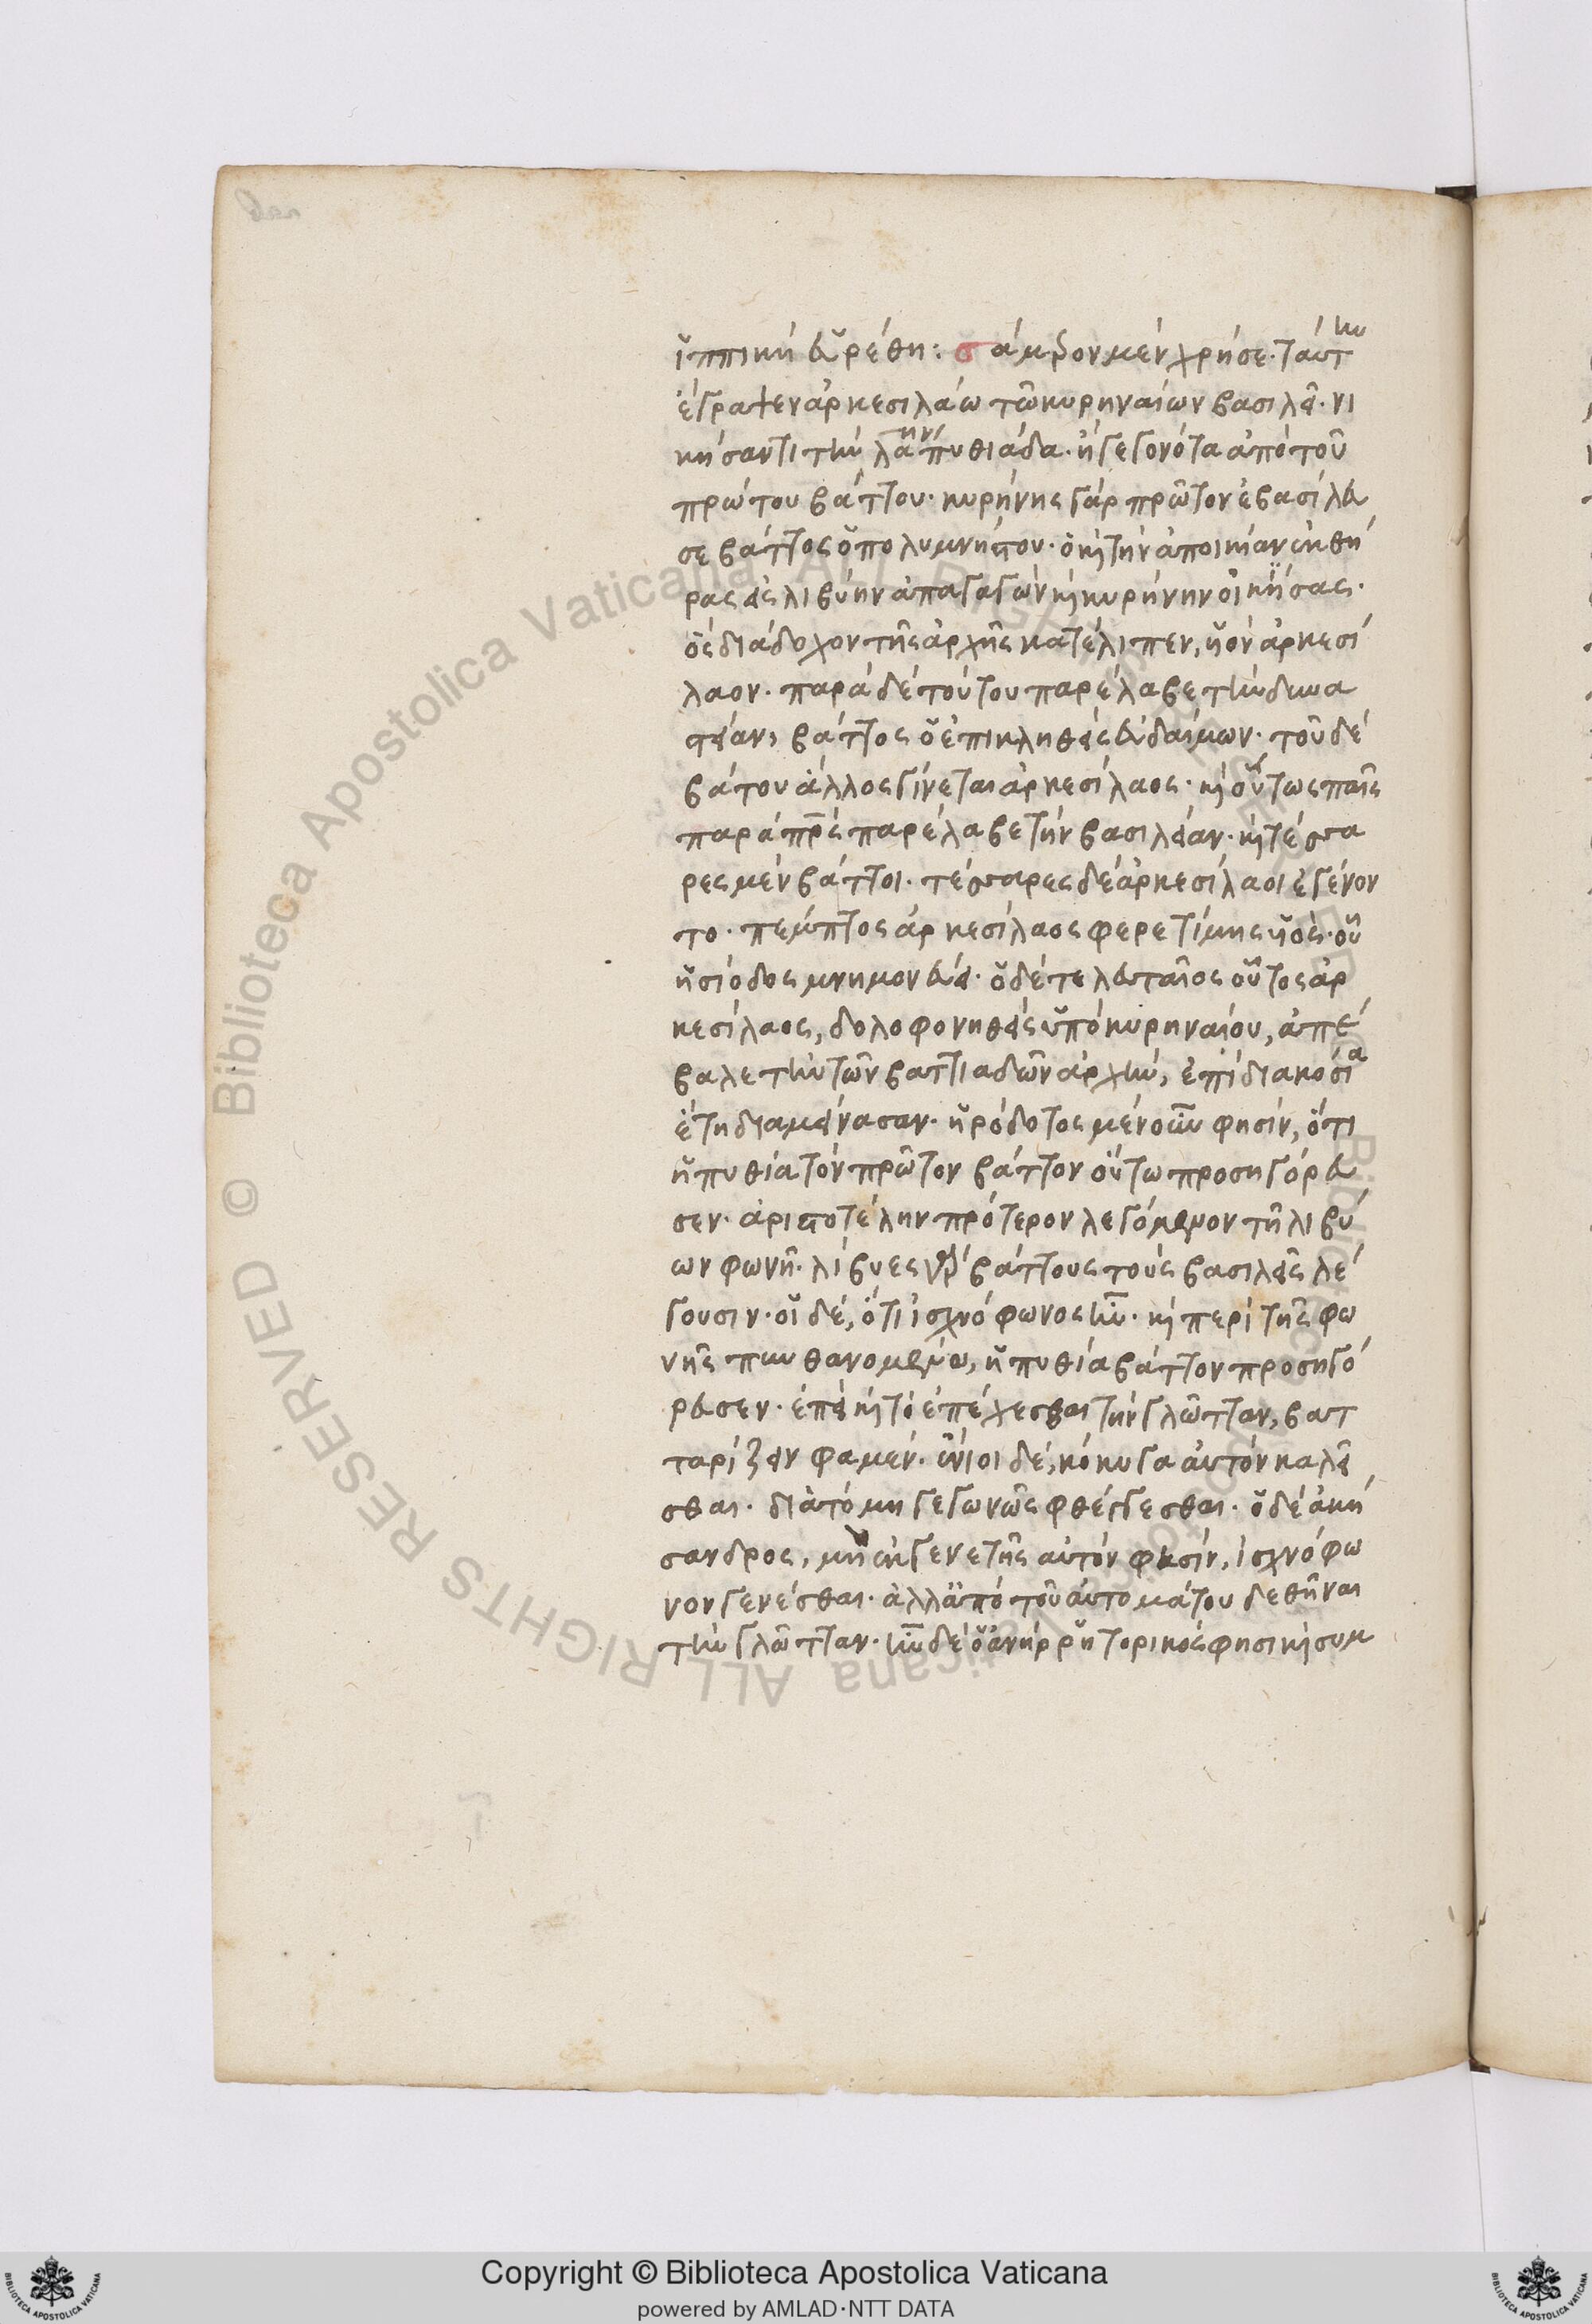 ἱππικὴ εὑρέθη: σάμερον μὲν χρή σε. ταύτην
ἔγραψεν ἀρκεσιλάω τῶ κυρηναίων βασιλεῖ. νι
κήσαντι τὴν λ̅α̅ην πυθιάδα. ἢ γεγονότα ἀπὸ τοῦ
πρώτου βάττου. κυρήνης γὰρ πρῶτον ἐβασίλευ
σε βάττος ὁ πολυμνήστου. ὁ καὶ τὴν ἀποικίαν ἐκ θή
ρας εἰς λιβύην ἀπαγαγὼν καὶ κυρήνην οἰκήσας.
ὃς διάδοχον τῆς ἀρχῆς κατέλιπεν, υἱὸν ἀρκεσί
λαον. παρὰ δὲ τούτου παρέλαβε τὴν δυνα
στείαν, βάττος ὁ ἐπικληθεὶς εὐδαίμων. τοῦ δὲ
βάτου ἄλλος γίνεται ἀρκεσίλαος. καὶ οὕτως παῖς
παρὰ πρς παρέλαβε τὴν βασιλείαν. καὶ τέσσα
ρες μὲν βάττοι. τέσσαρες δὲ ἀρκεσίλαοι ἐγένον
το. πέμπτος ἀρκεσίλαος φερετίμης υἱός. οὗ
ἡσίοδος μνημονεύει. ὁ δὲ τελευταῖος οὗτος ἀρ
κεσίλαος, δολοφονηθεὶς ὑπὸ κυρηναίου, ἀπέ
βαλε τὴν τῶν βαττιαδῶν ἀρχὴν, ἐπὶ διακόσια
ἔτη διαμείνασαν. ἡρόδοτος μὲν οὖν φησίν, ὅτι
ἡ πυθία τὸν πρῶτον βάττον οὕτω προσηγόρευ
σεν. ἀριστοτέλην πρότερον λεγόμενον τῆ λιβύ
ων φωνῆ. λίβυες γὰρ βάττους τοὺς βασιλεῖς λέ
γουσιν. οἱ δὲ, ὅτι ἰσχνόφωνος ἦν. καὶ περὶ τῆς φω
νῆς πυνθανομένω, ἡ πυθία βάττον προσηγό
ρευσεν. ἐπεὶ καὶ τὸ ἐπέχεσθαι τὴν γλῶτταν, βατ
ταρίζειν φαμέν. ἔνιοι δὲ, κόκυγα αὐτὸν καλεῖ
σθαι. διὰ τὸ μὴ γεγωνῶς φθέγγεσθαι. ὁ δὲ ἀκή
σανδρος, μὴ ἐκ γενετῆς αὐτόν φησίν, ἰσχνόφω
νον γενέσθαι. ἀλλ' ἀπὸ τοῦ αὐτομάτου δεθῆναι
τὴν γλῶτταν. ἦν δὲ ὁ ἀνὴρ ῥητορικός φησι καὶ συμ
Copyright © Biblioteca Apostolica Vaticana
powered by AMLAD·NTT DATA
Biblioteca Apostolica Vaticana ALL RIGHTS RESERVED ©